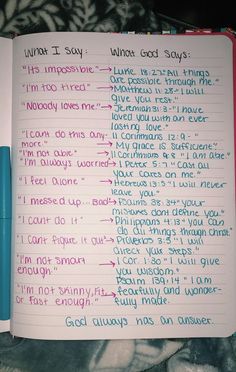 What I Say: What God Says:
"Its impossible" → Luke 18:27 "All things
are possible through me."
"I'm too tired" → Matthew 11:28 - "I will
give you rest."
"Nobody loves me" → Jeremiah 31:3 - "I have
loved you with an ever
lasting love."
"I cant do this any- → II Corinthians 12:9 - "
more." My grace is sufficient."
"I'm not able." → II Corinthians 9:8 "I am able."
"I'm always worried" → I Peter 5:7 "Cast all
your cares on me."
"I feel alone" → Hebrews 13:5 "I will never
leave you."
"I messed up... bad" → Psalms 38:34 "your
mistakes dont define you."
"I cant do it" → Philippians 4:13 "you can
do all things through christ."
"I cant figure it out" → Proverbs 3:5 "I will
direct your steps."
"I'm not smart → I Cor. 1:30 "I will give
enough." you wisdom."
Psalm 139:14 "I am
"I'm not skinny, fit, → fearfully and wonder-
or fast enough." fully made.
God always has an answer.